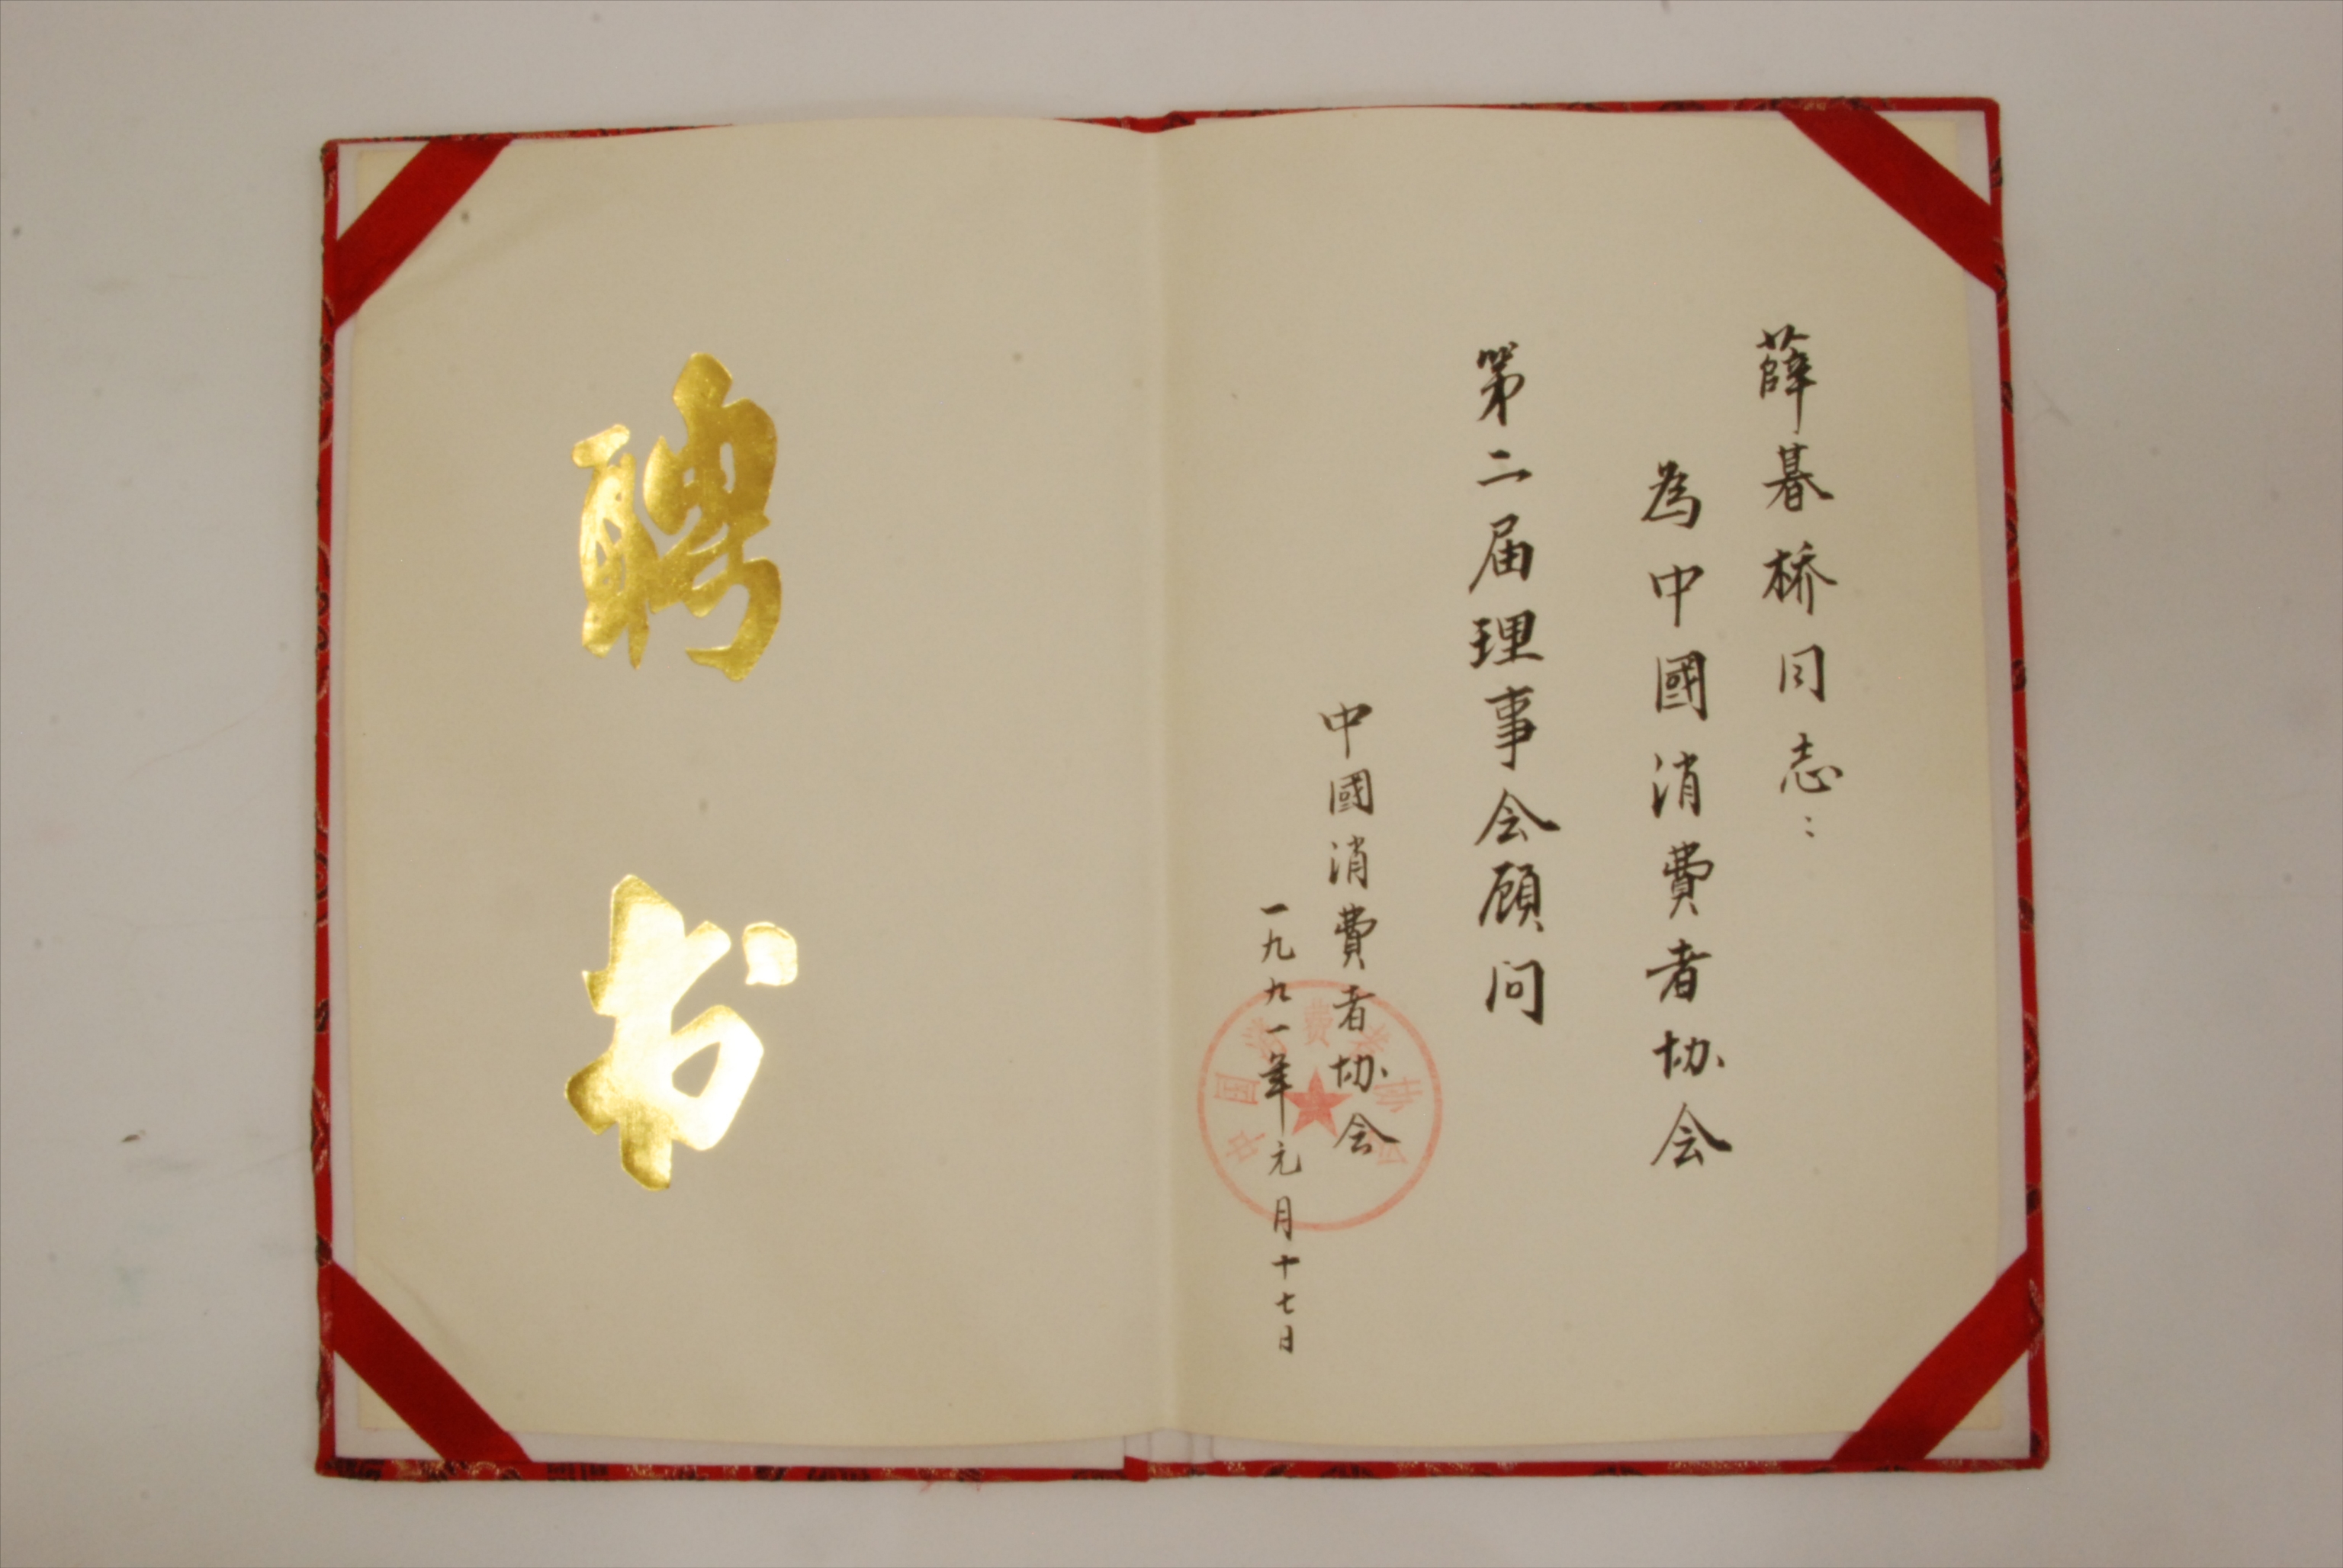 聘书
薛暮桥同志：
為中國消費者协会
第二届理事会顧问
中國消費者协会
一九九一年元月十七日
中国消费者协会